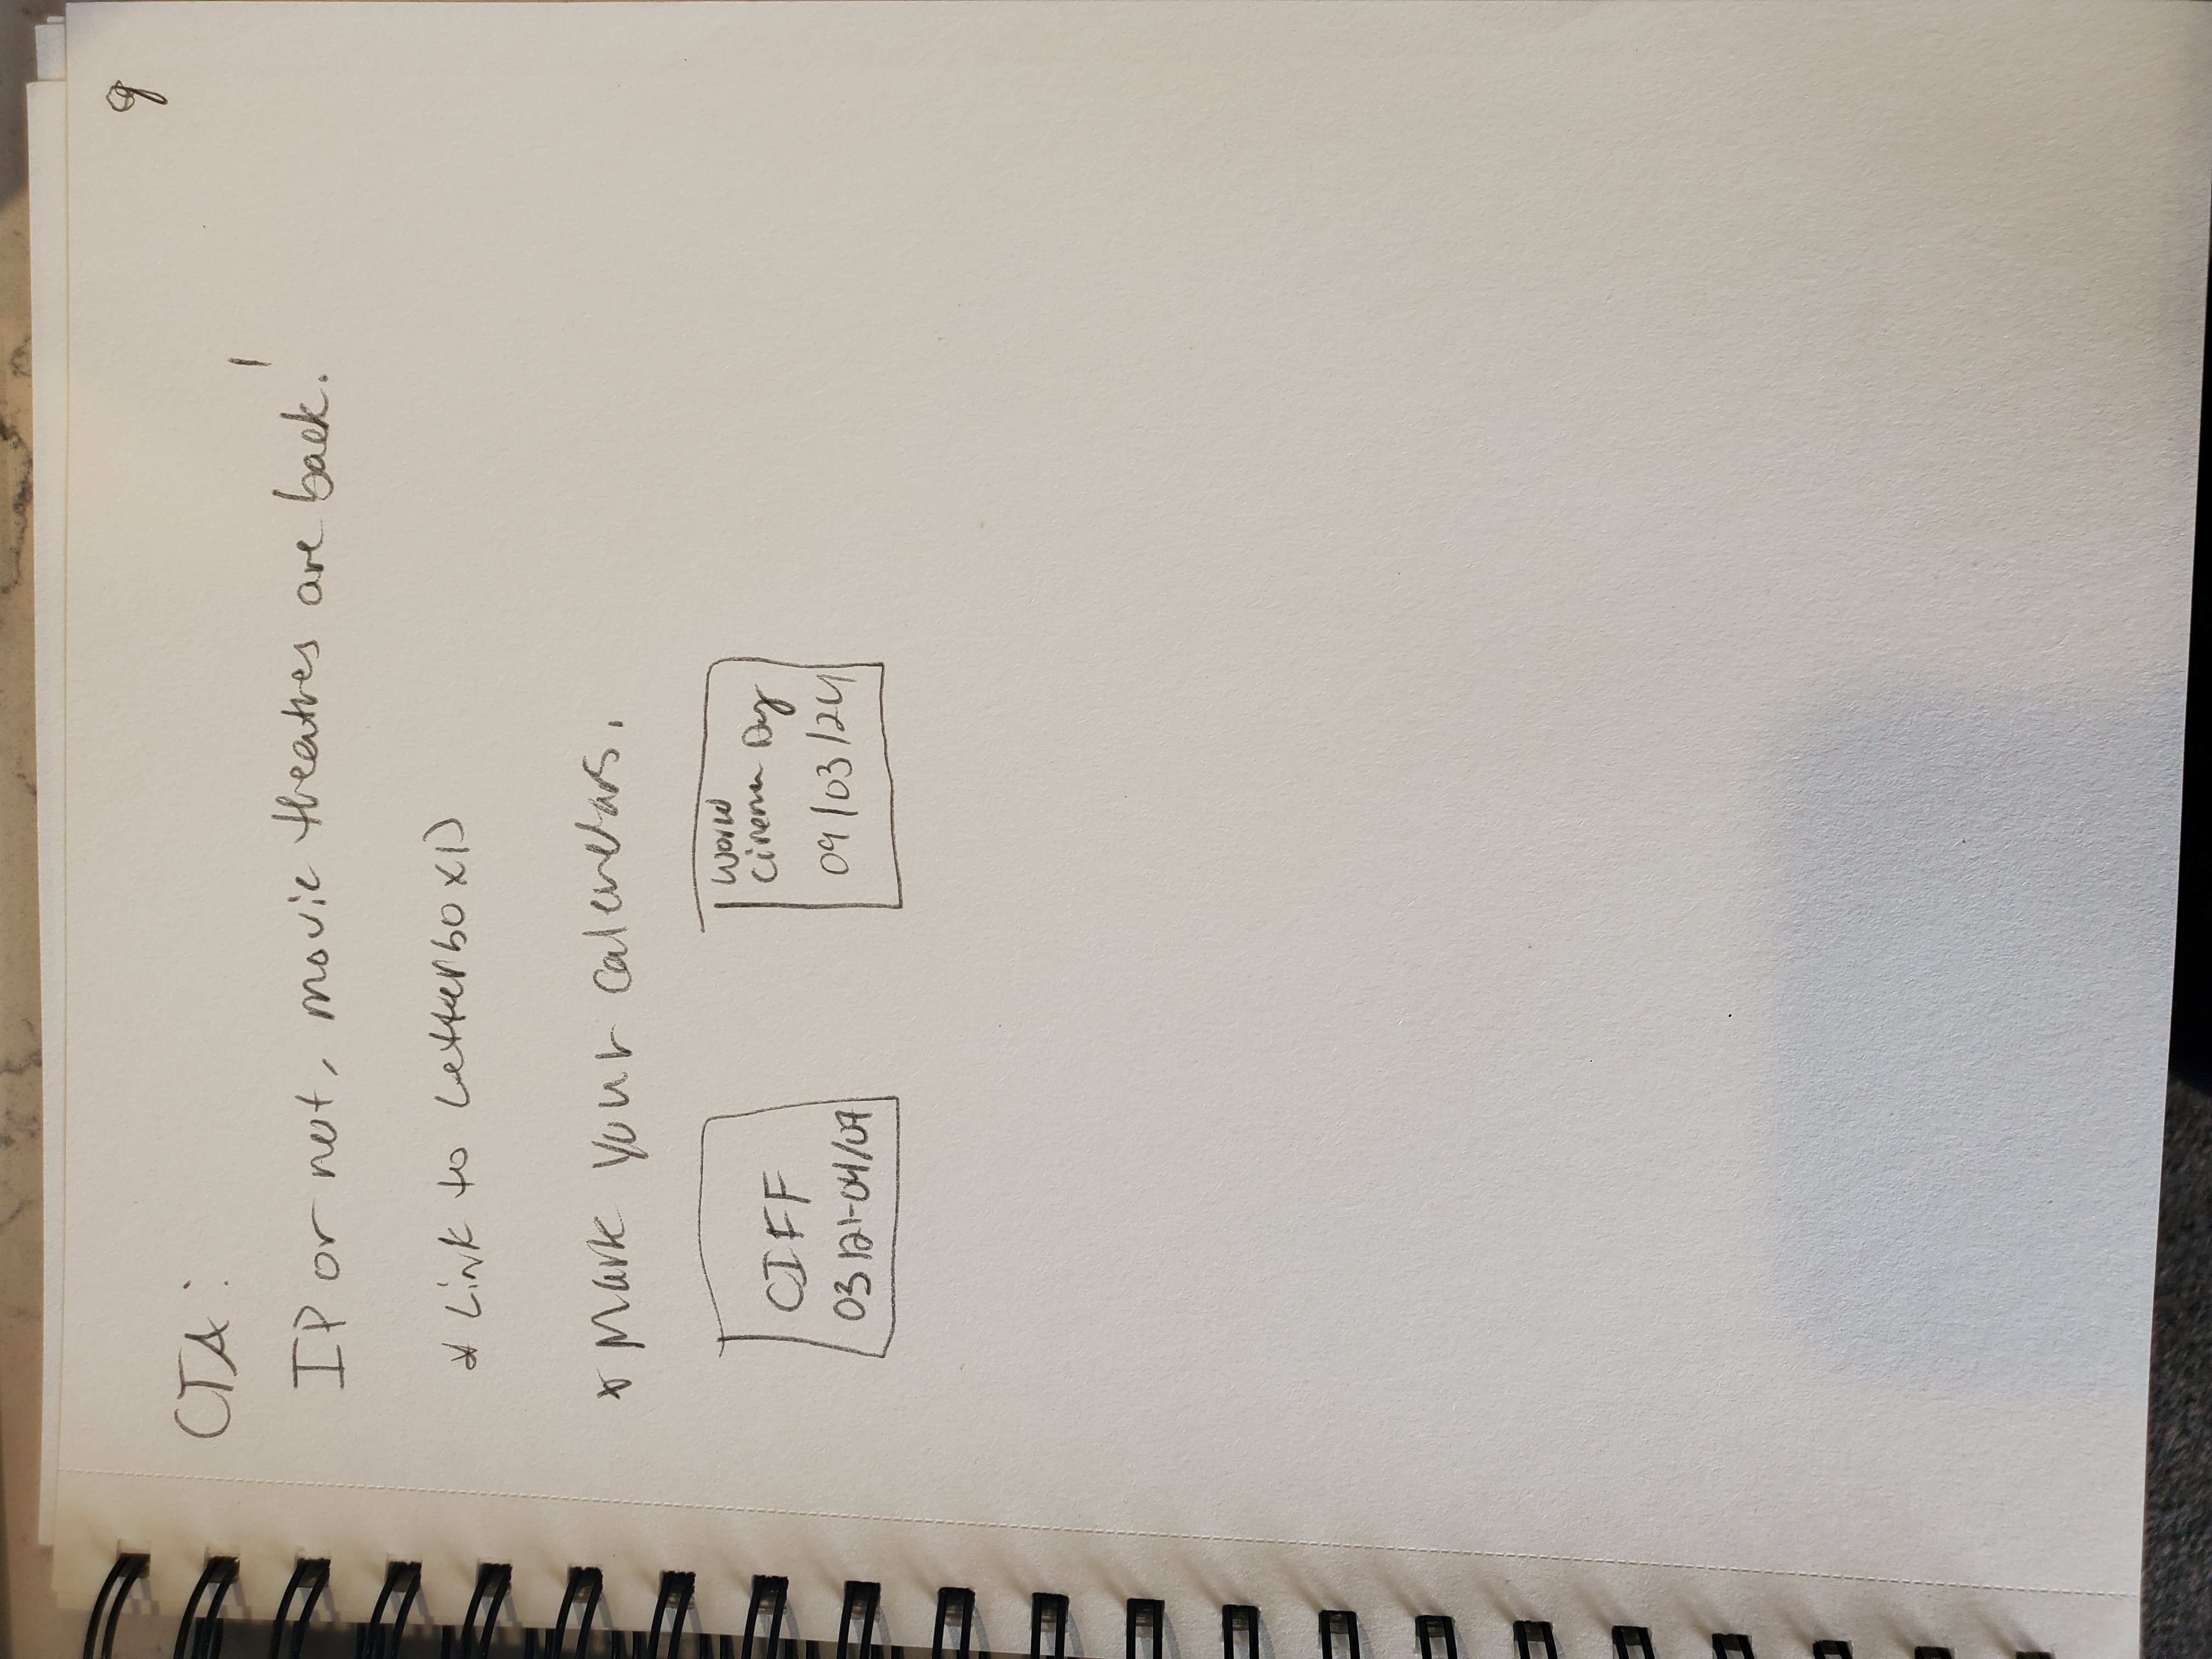 9
CTA:
IP or not, movie theatres are back!
* Link to LetterboxD
* Mark your calendars.
CIFF
03/21-04/07
World
Cinema Day
09/03/24